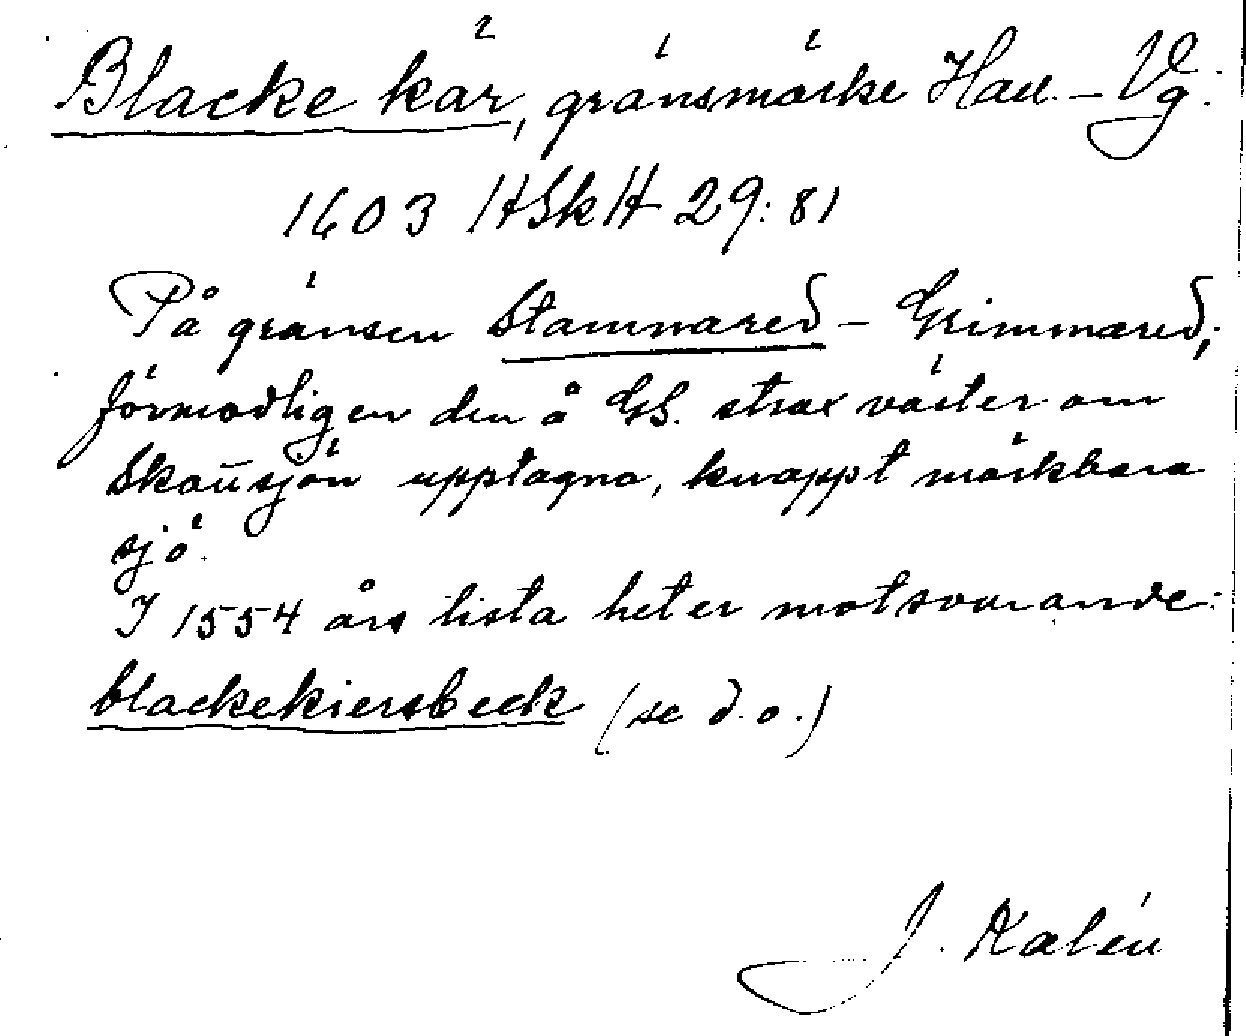 Blacke kär, gränsmärke Hall. – Vg.
1603 HSkH 29:81
På gränsen Stamnared – Grimmared;
förmodligen den å GS. strax väster om
Skaŭsjön upptagna, knappt märkbara
sjö.
I 1554 års lista heter motsvarande:
blackekiersbeck (se d.o.)
J. Kalén